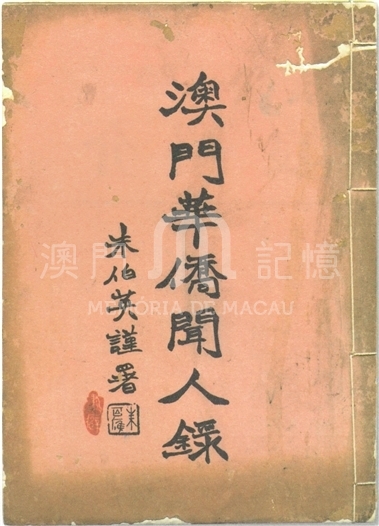 澳門華僑聞人錄
朱伯英謹署
澳門 記憶
MEMÓRIA DE MACAU